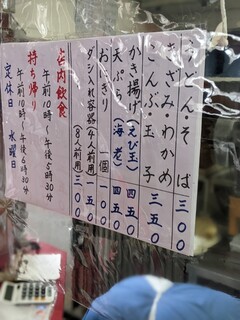 うどん・そば 三〇〇
きざみ・わかめ
こんぶ・玉子 三五〇
かき揚げ(えび玉) 四五〇
天ぷら(海老) 四五〇
おにぎり 一個 一〇〇
ダシ入れ容器(4人前用) 一五〇
(8人前用) 三〇〇
店内飲食
午前10時〜午後5時30分
持ち帰り
午前10時〜午後6時30分
定休日 水曜日